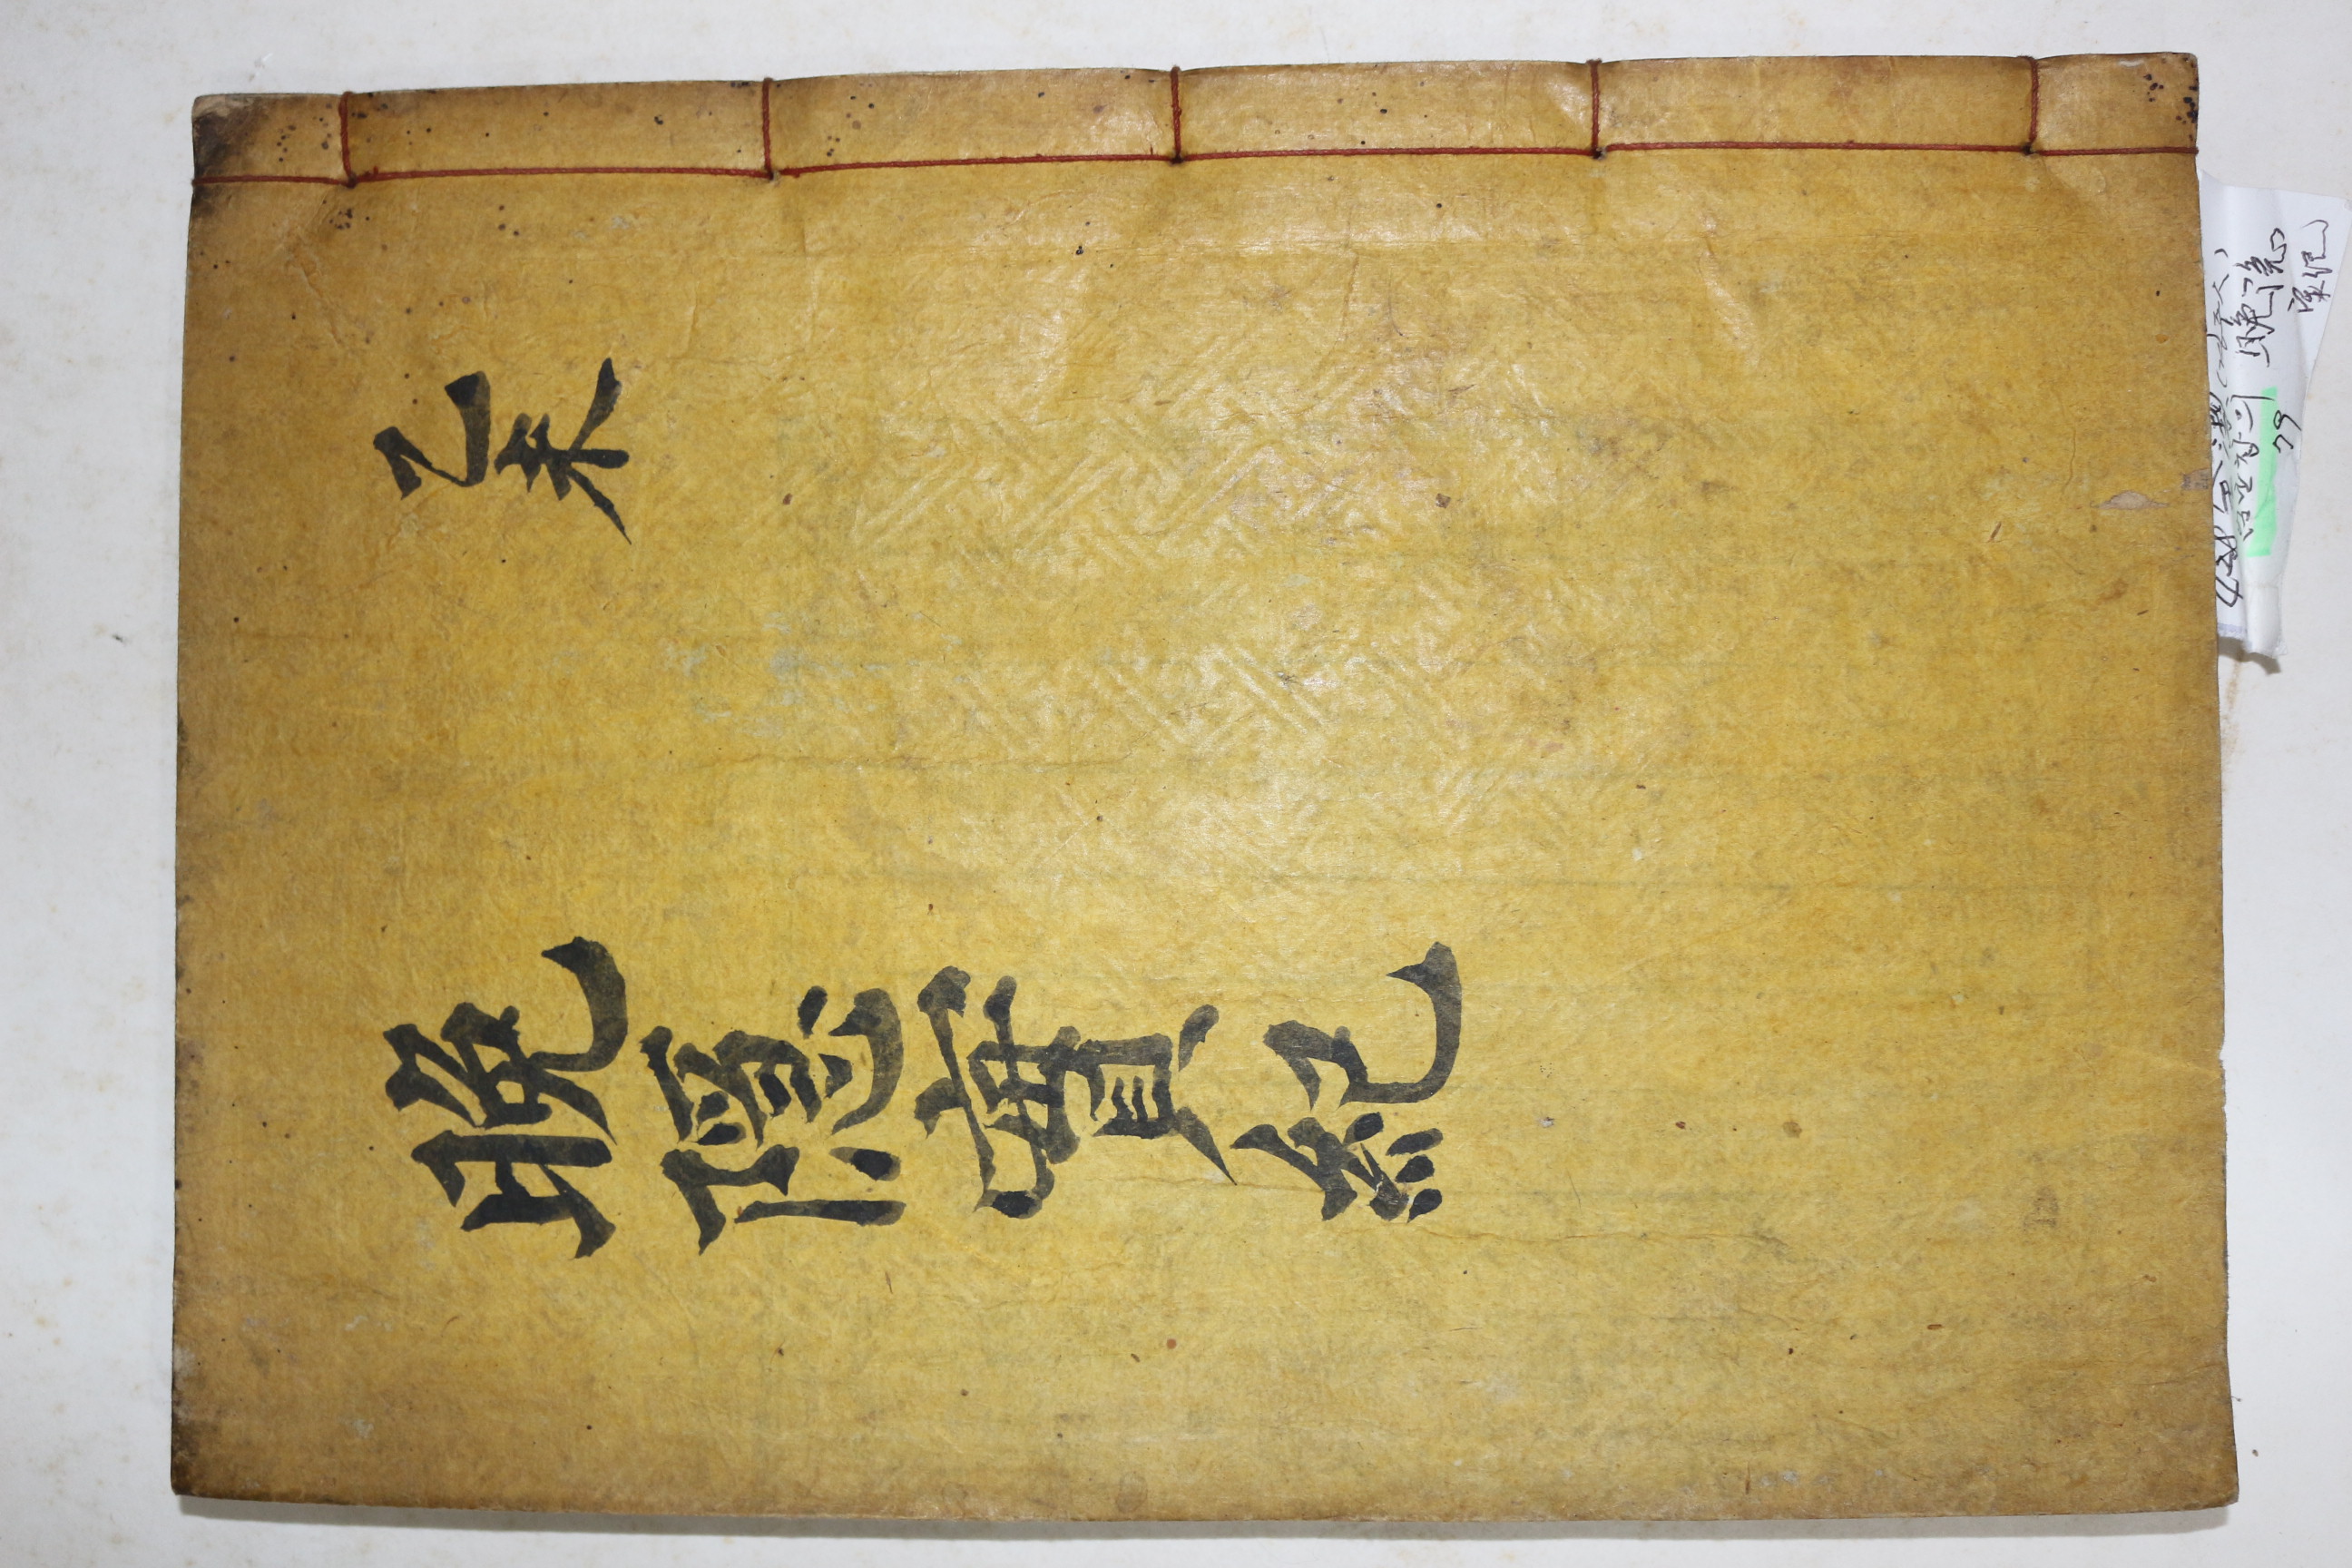 乙未
晩隱實紀
晩隱
實紀
79